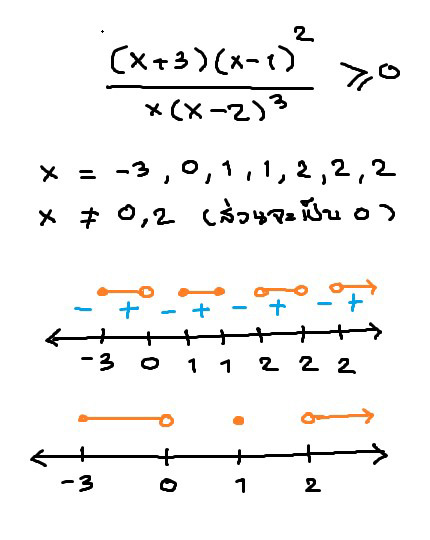 (x+3)(x-1)²
x(x-2)³
≥ 0
x = -3, 0, 1, 1, 2, 2, 2
x ≠ 0, 2 (ส่วนจะเป็น 0)
- + - + - + - +
-3 0 1 1 2 2 2
-3 0 1 2